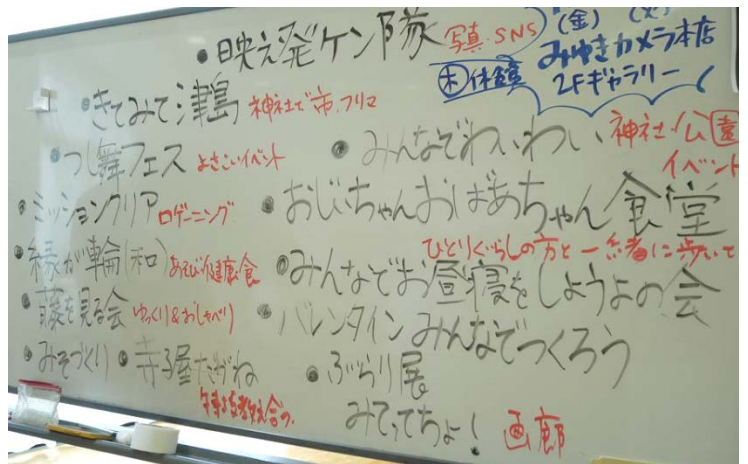 ・映え発ケン隊 写真・SNS
(金) (火)
みゆきカメラ本店
2Fギャラリー
㊍休館
・きてみて津島 神社で市、フリマ
・つし舞フェス よさこいイベント
・みんなでわいわい 神社・公園
イベント
・ミッションクリア ロゲーニング
・おじいちゃんおばあちゃん食堂
ひとりぐらしの方と一緒に歩いて
・縁が輪(和) あそび健康食
・みんなでお昼寝をしようよの会
・藤を見る会 ゆっくり&おしゃべり
・バレンタイン みんなでつくろう
・みそづくり ・寺子屋
・ぶらり展
みてってちょ! 画廊